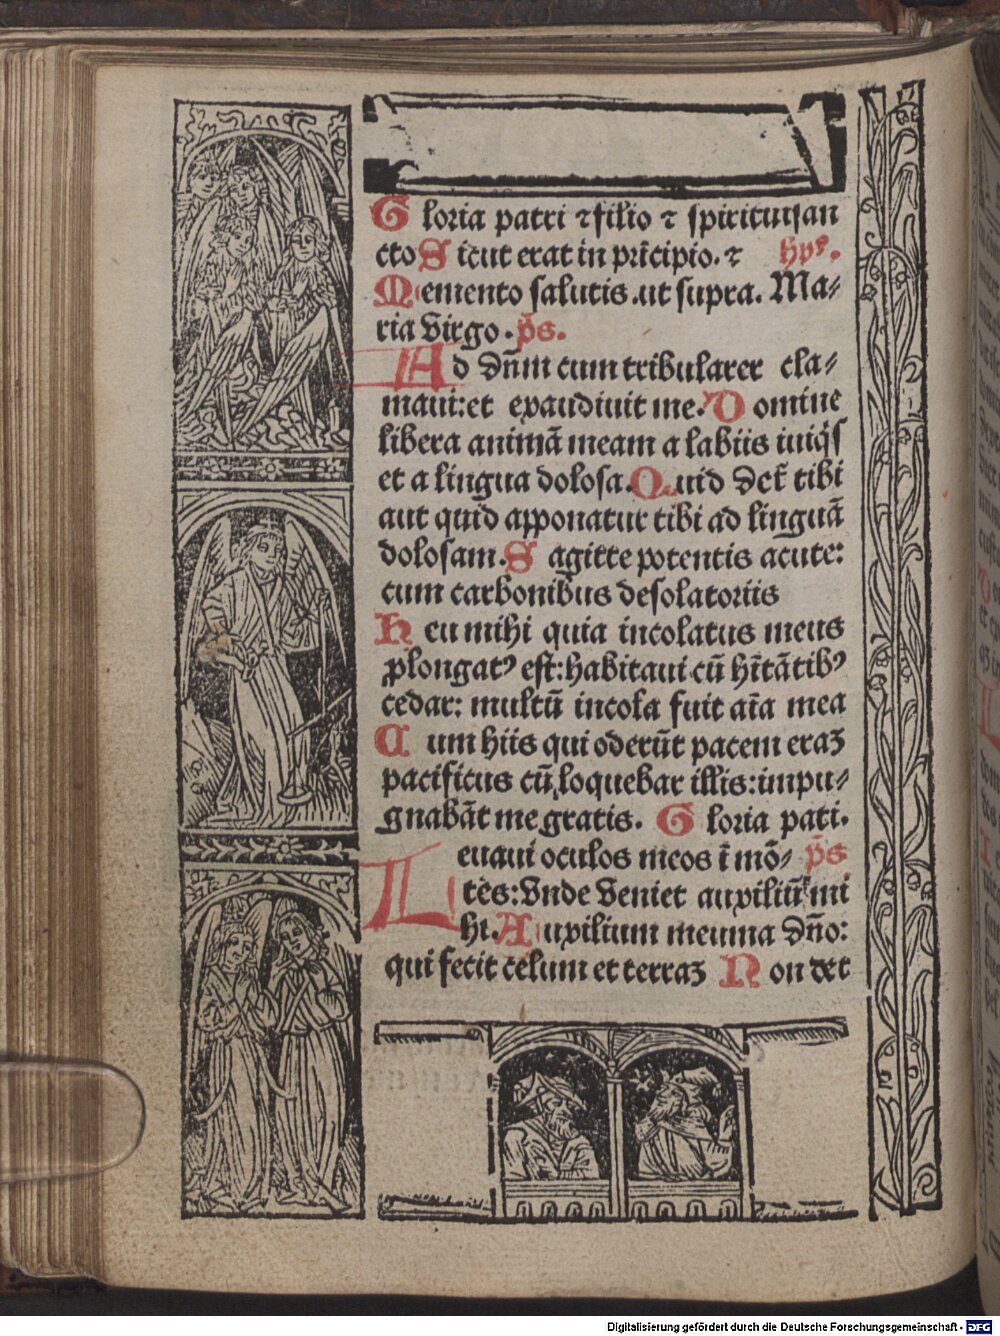 Gloria patri ⁊ filio ⁊ spirituisan
cto Sicut erat in pricipio. ⁊ hys.
Memento salutis .ut supra. Ma⸗
ria Virgo. ps.
Ad dn̄m cum tribularer cla⸗
maui: et exaudiuit me. Domine
libera animā meam a labiis iniq̄s
et a lingua dolosa. Quid det̄ tibi
aut quid apponatur tibi ad linguā
dolosam. Sagitte potentis acute:
cum carbonibus desolatoriis
Heu mihi quia incolatus meus
ꝓlongatꝰ est: habitaui cū hītātibꝰ
cedar: multū incola fuit aīa mea
Cum hiis qui oderūt pacem eraꝫ
pacificus cū loquebar illis: impu⸗
gnabāt me gratis. Gloria patri.
Leuaui oculos meos ī mō⸗ ps
tes: Vnde Veniet auxiliū mi
hi. Auxilium meum a dn̄o:
qui fecit celum et terraꝫ Non det
Digitalisierung gefördert durch die Deutsche Forschungsgemeinschaft - DFG